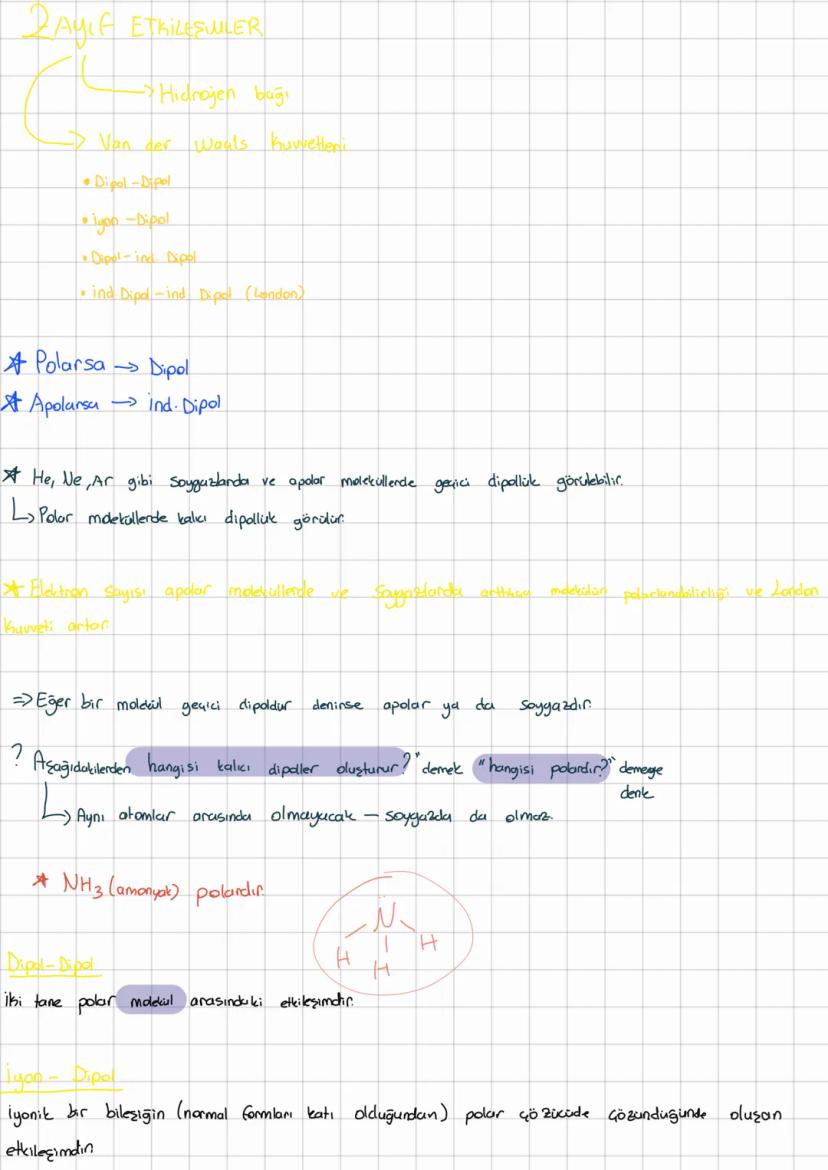 ZAYIF ETKİLEŞİMLER
→ Hidrojen bağı
→ Van der Waals kuvvetleri
• Dipol-Dipol
• iyon-Dipol
• Dipol-ind. Dipol
• ind Dipol-ind Dipol (London)
★ Polarsa → Dipol
★ Apolarsa → ind. Dipol
★ He, Ne, Ar gibi soygazlarda ve apolar moleküllerde geçici dipollük görülebilir.
↳ Polar moleküllerde kalıcı dipollük görülür.
★ Elektron sayısı apolar moleküllerde ve soygazlarda arttıkça molekülün polarlanabilirliği ve London
kuvveti artar.
⇒ Eğer bir molekül geçici dipoldur denirse apolar ya da soygazdır.
? Aşağıdakilerden hangisi kalıcı dipoller oluşturur?" demek "hangisi polardır?" demeye
denk
↳ Aynı atomlar arasında olmayacak - soygazda da olmaz.
★ NH3 (amonyak) polardır.
N
H H H
Dipol-Dipol
İki tane polar molekül arasındaki etkileşimdir.
İyon - Dipol
iyonik bir bileşiğin (normal formları katı olduğundan) polar çözücüde çözündüğünde oluşan
etkileşimdir.